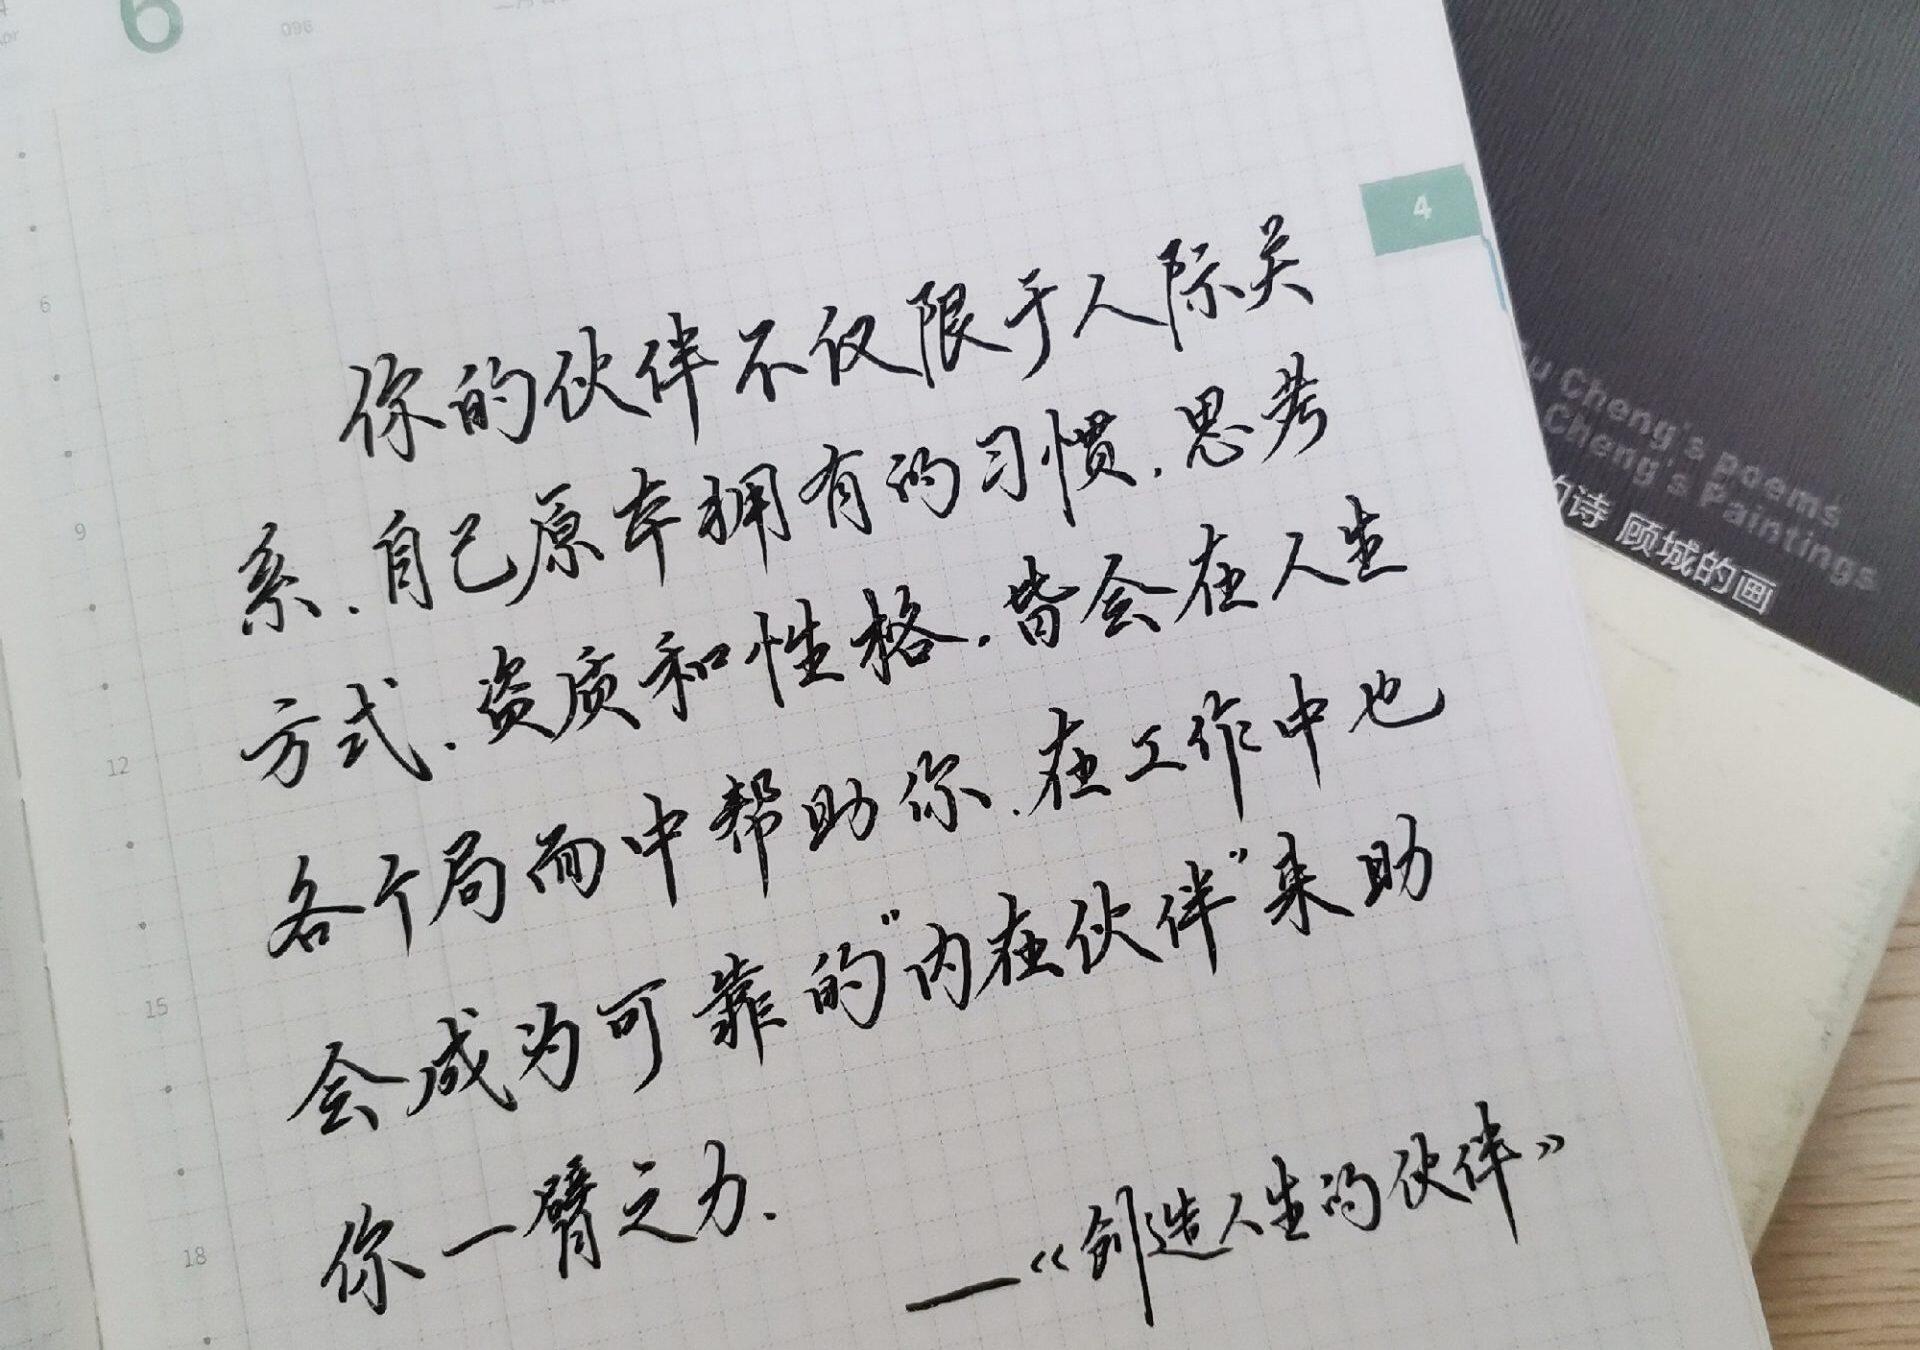 6
096
4
你的伙伴不仅限于人际关
系.自己原本拥有的习惯.思考
方式.资质和性格.皆会在人生
各个局面中帮助你.在工作中也
会成为可靠的"内在伙伴"来助
你一臂之力.
—《创造人生的伙伴》
6
9
12
15
18
u Cheng's poems
Cheng's Paintings
的诗 顾城的画